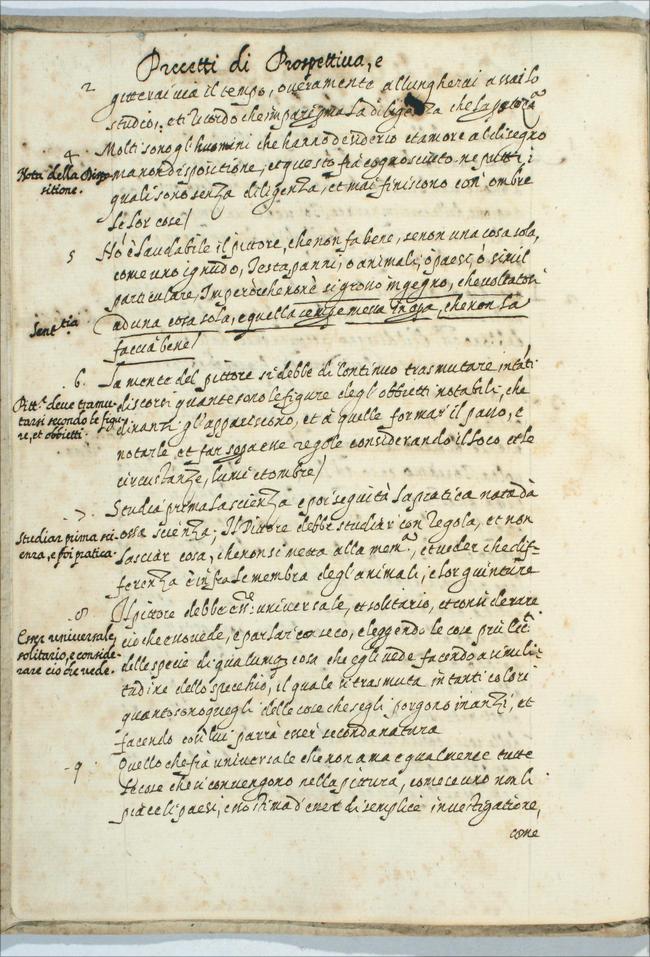 Precetti di Prospettiva, e
2
gitterai via il tempo, overamente allungherai assai lo
studio, et ricordo che impari prima la diligenza che la prestezza
4
Nota della Dispo-
sitione.
Molti sono gl'huomini che hanno desiderio et amore al disegno
ma non dispositione, et questo fia cognosciuto ne putti i
quali sono senza diligenza, et mai finiscono con ombre
le lor cose/
5
No è laudabile il pittore, che non fa bene, se non una cosa sola,
come uno ignudo, Testa, panni, o animali, o paesi, o simil
particulare, Imperò che non è si grosso ingegno, che voltatosi
Sententia
ad una cosa sola, e quella sempre messa in opa, che non la
faccia bene/
6.
Pitt.e deve tramu-
tarsi secondo le figu-
re, et obbietti.
La mente del pittore si debbe di continuo trasmutare in tāti
discorsi quante sono le figure degl'obbietti notabili, che
dinanzi gl'appariscono, et à quelle fermar il passo, e
notarle, et far sopa esse regole considerando il loco et le
circustanze, lumi et ombre/
7.
Studiar prima sci-
enza, e poi pratica.
Studia prima la scienza e poi seguità la pratica nata dà
essa scienza; Il Pittore debbe studiar con regola, et non
lasciar cosa, che non si metta alla mem.a, et veder che dif-
ferenza è infra le membra degl'animali, e lor giunture
8
Esser universale,
solitario, e conside-
rare ciò che vede.
Il pittore debbe ess.e universale, et solitario, et considerare
ciò che esso vede, e parlar con seco, eleggendo le cose più ecc.ti
delle specie di qualunq cosa che egli vede facendo a simili-
tudine dello specchio, il quale si trasmuta in tanti colori
quanto sono quegli delle cose che segli porgono inanzi, et
facendo così lui parrà esser seconda natura
9
Quello che fia universale che non ama equalmente tutte
le cose che si convengono nella pittura, come se uno non li
piace li paesi, esso stima d'esser di semplice investigatione,
come